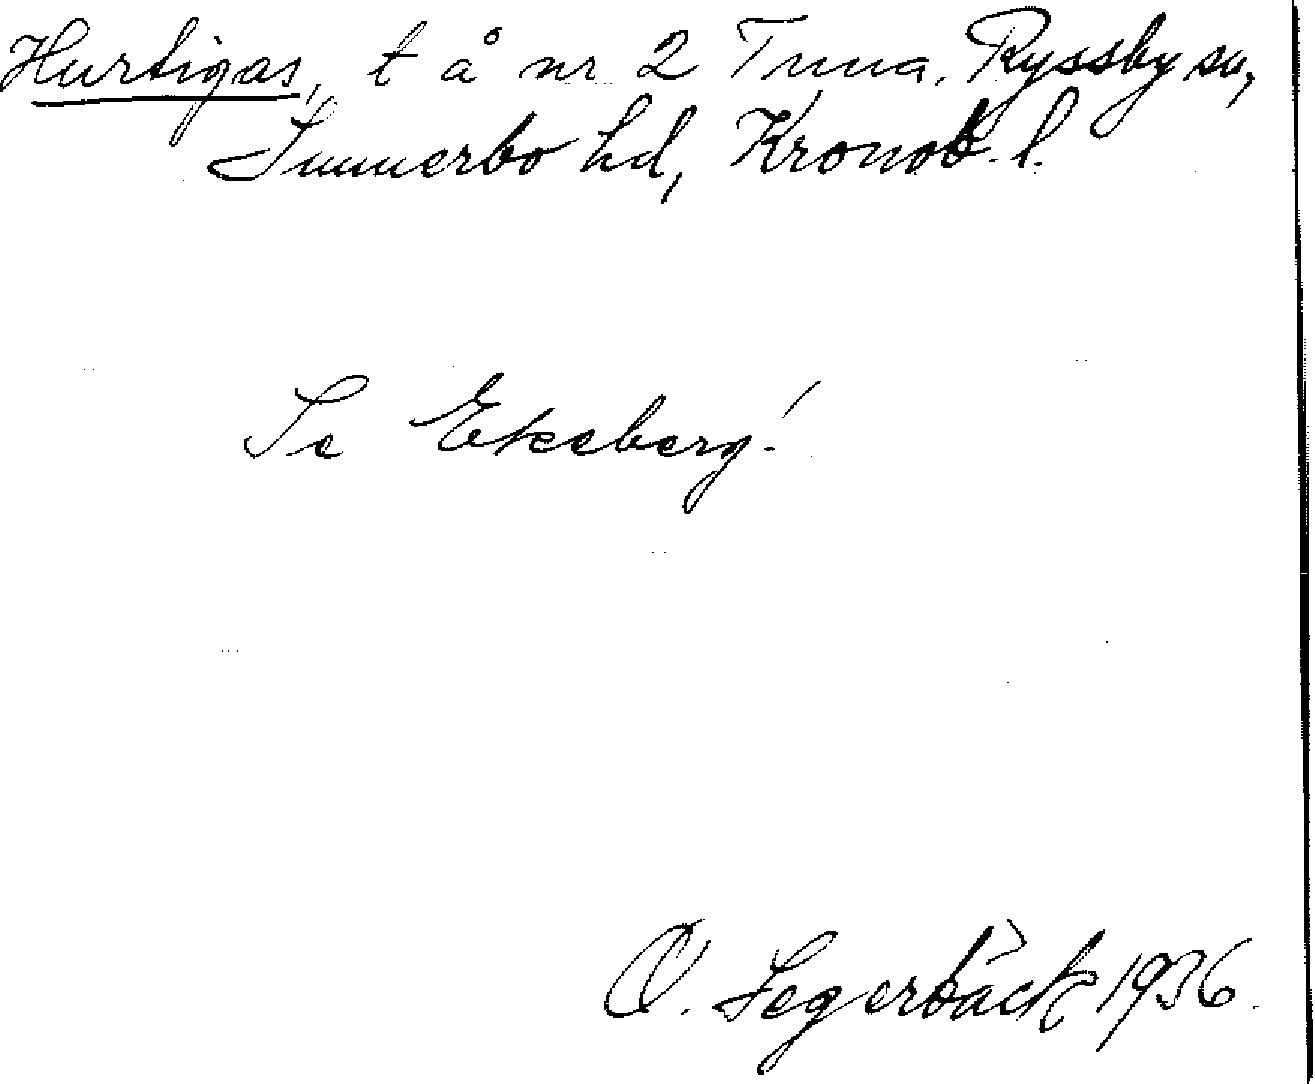 Hurtigas, t å nr 2 Tuna, Ryssby sn,
Sunnerbo hd, Kronob. l.
Se Ekeberg!
O. Segerbäck 1936.